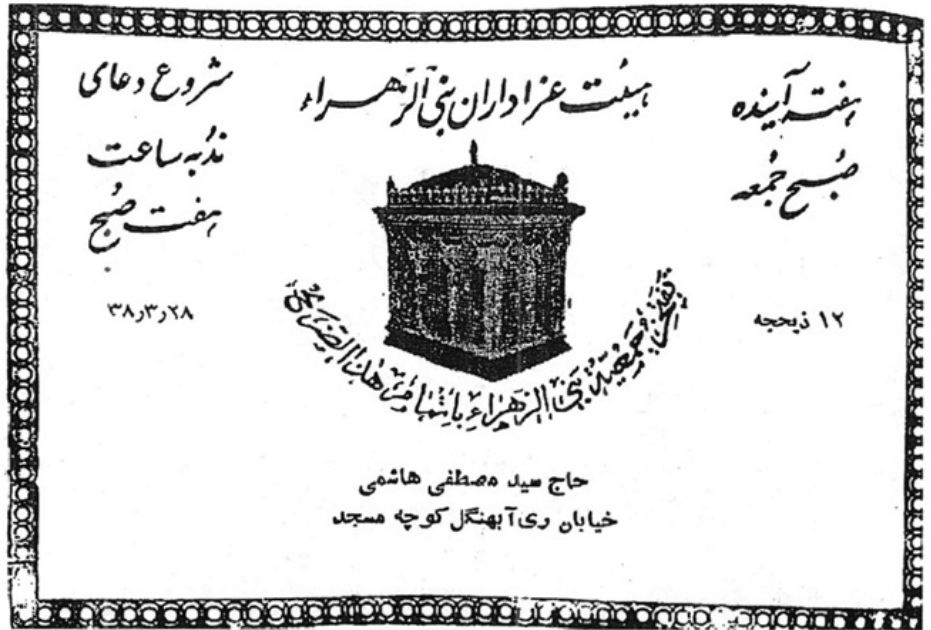 هیئت عزاداران بنی الزهراء
هفته آینده
صبح جمعه
۱۲ ذیحجه
شروع دعای
ندبه ساعت
هفت صبح
۲۸ر۳ر۳۸
تفتخر جمعیة بنی الزهراء باتمام هذا الضریح
حاج سید مصطفی هاشمی
خیابان ری آبمنگل کوچه مسجد